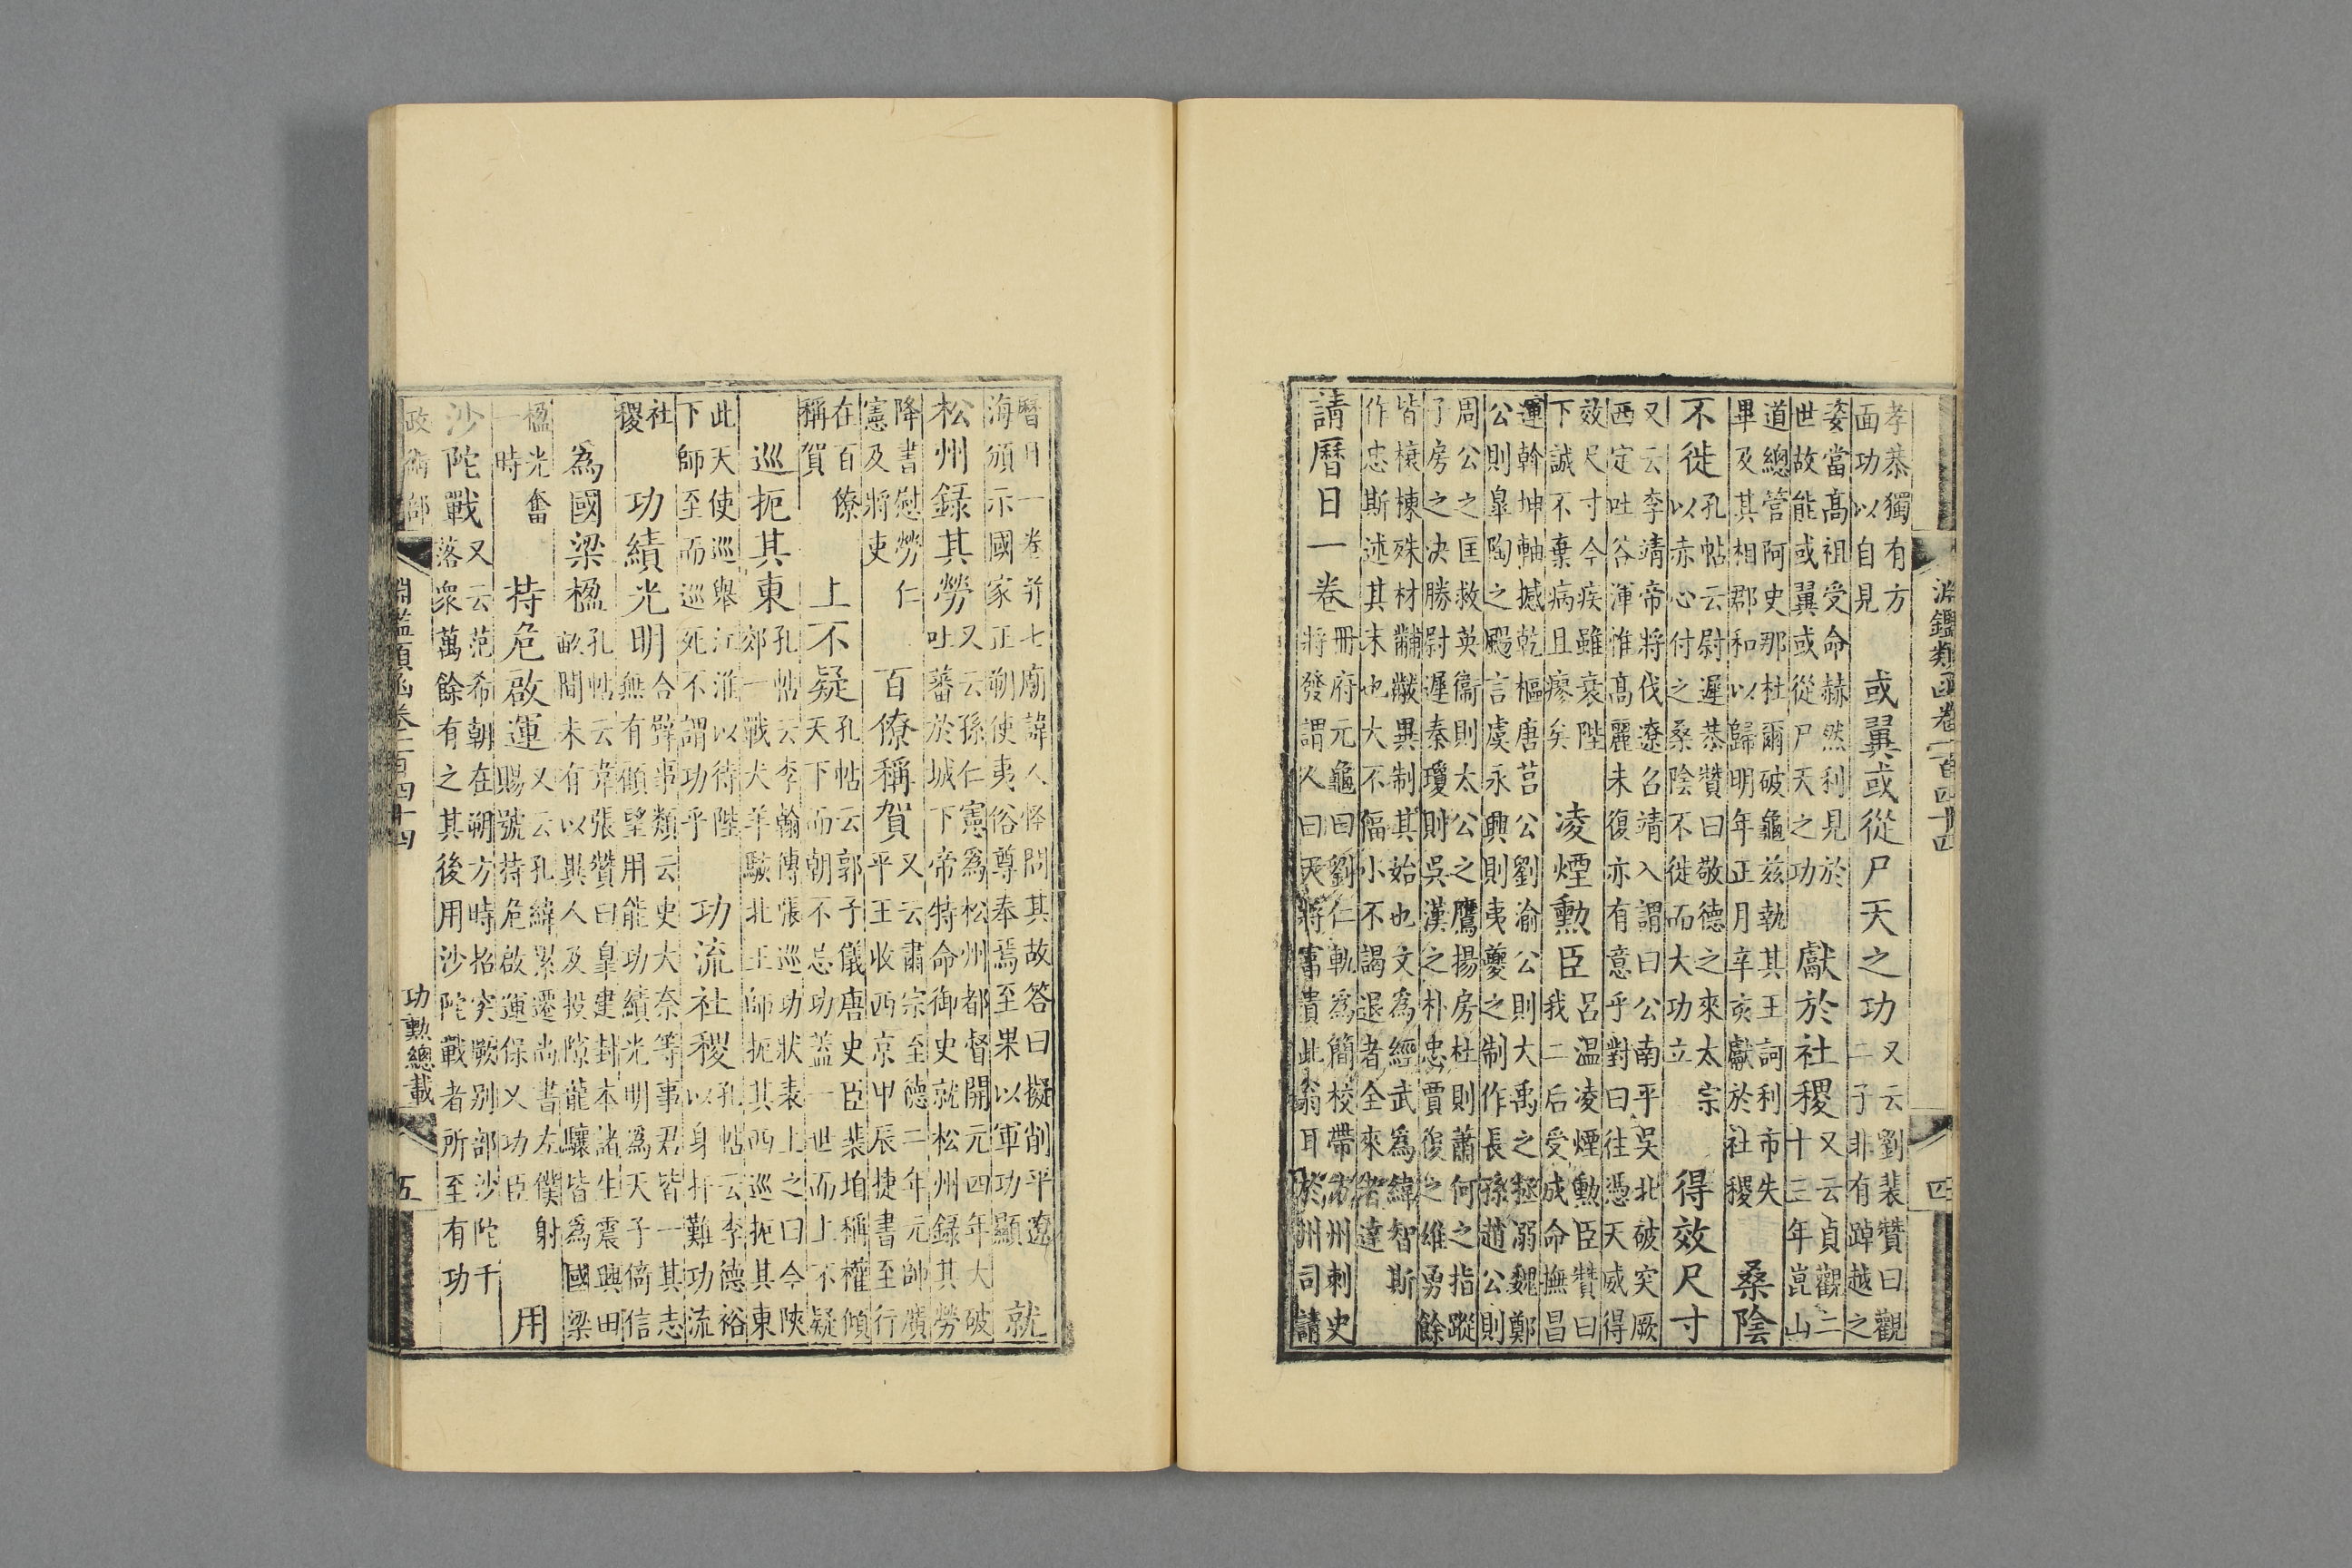 淵鑑類函卷一百四十四
四
孝恭獨有方
面功以自見
或翼或從尸天之功
又云劉裴贊曰觀
二子非有踔越之
姿當高祖受命赫然利見於
世故能或翼或從尸天之功
獻於社稷
又云貞觀二
十三年崑山
道總管阿史那杜爾破龜茲執其王訶利市失
畢及其相郡和以歸明年正月辛亥獻於社稷
桑陰
不徙
孔帖云尉遲恭贊曰敬德之來太宗
以赤心付之桑陰不徙而大功立
得效尺寸
又云李靖帝將伐遼召靖入謂曰公南平吳北破突厥
西定吐谷渾惟高麗未復亦有意乎對曰往憑天威得
效尺寸今疾雖衰陛
下誠不棄病且瘳矣
凌煙勳臣
呂温凌煙勳臣贊曰
我二后受成命撫昌
運幹坤軸撼乾樞唐莒公劉渝公則大禹之拯溺魏鄭
公則皐陶之颺言虞永興則夷夔之制作長孫趙公則
周公之匡救英衞則太公之鷹揚房杜則蕭何之指蹤
子房之决勝尉遲秦瓊則吳漢之朴忠賈復之雄勇餘
皆榱棟殊材黼黻異制其始也文為經武為緯智斯
作忠斯述其末也大不偪小不謁退者全來者達
請曆日一卷
冊府元龜曰劉仁軌為簡校帶方州刺史
將發謂人曰天將富貴此翁耳於州司請
曆日一卷并七廟諱人怪問其故答曰擬削平遼
海頒示國家正朔使夷俗尊奉焉至果以軍功顯
就
松州録其勞
又云孫仁憲為松州都督開元四年大破
吐蕃於城下帝特命御史就松州録其勞
降書慰勞仁
憲及將吏
百僚稱賀
又云肅宗至德二年元帥廣
平王收西京甲辰捷書至行
在百僚
稱賀
上不疑
孔帖云郭子儀唐史臣裴垍稱權傾
天下而朝不忌功蓋一世而上不疑
巡扼其東
孔帖云李翰傳張巡功狀表上之曰今陝
郊一戰犬羊駭北王師扼其西巡扼其東
此天使巡舉江淮以待陛
下師至而巡死不謂功乎
功流社稷
孔帖云李德裕
以身扞難功流
社
稷
功績光明
合璧事類云史大奈等事君皆一其志
無有顧望用能功績光明為天子倚信
為國梁楹
孔帖云韋張贊曰皐建封本諸生震興田
畝間未有以異人及投隙龍驤皆為國梁
楹光奮
一時
持危啟運
又云孔緯累遷尚書左僕射
賜號持危啟運保乂功臣
用
沙陀戰
又云范希朝在朔方時招突厥别部沙陀千
落衆萬餘有之其後用沙陀戰者所至有功
政術部
淵鑑類函卷一百四十四
功勳總載
五